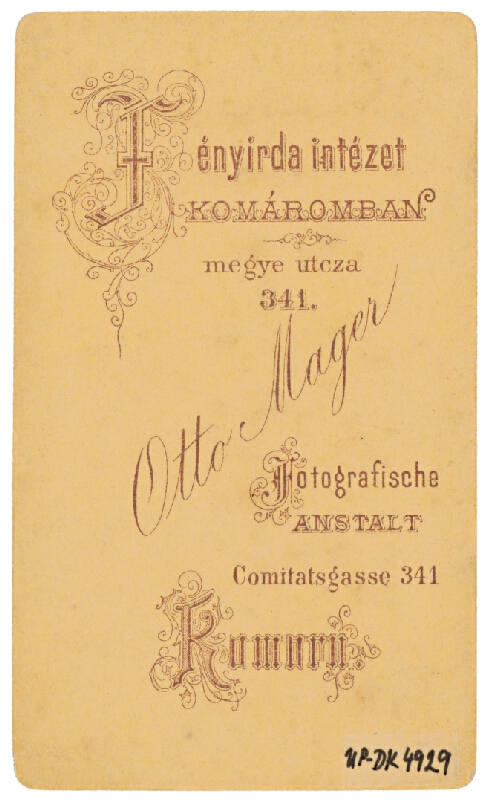 Fényirda intézet
KOMÁROMBAN
megye utcza
341.
Otto Mager
Fotografische
ANSTALT
Comitatsgasse 341
Komorn.
UP-DK 4929